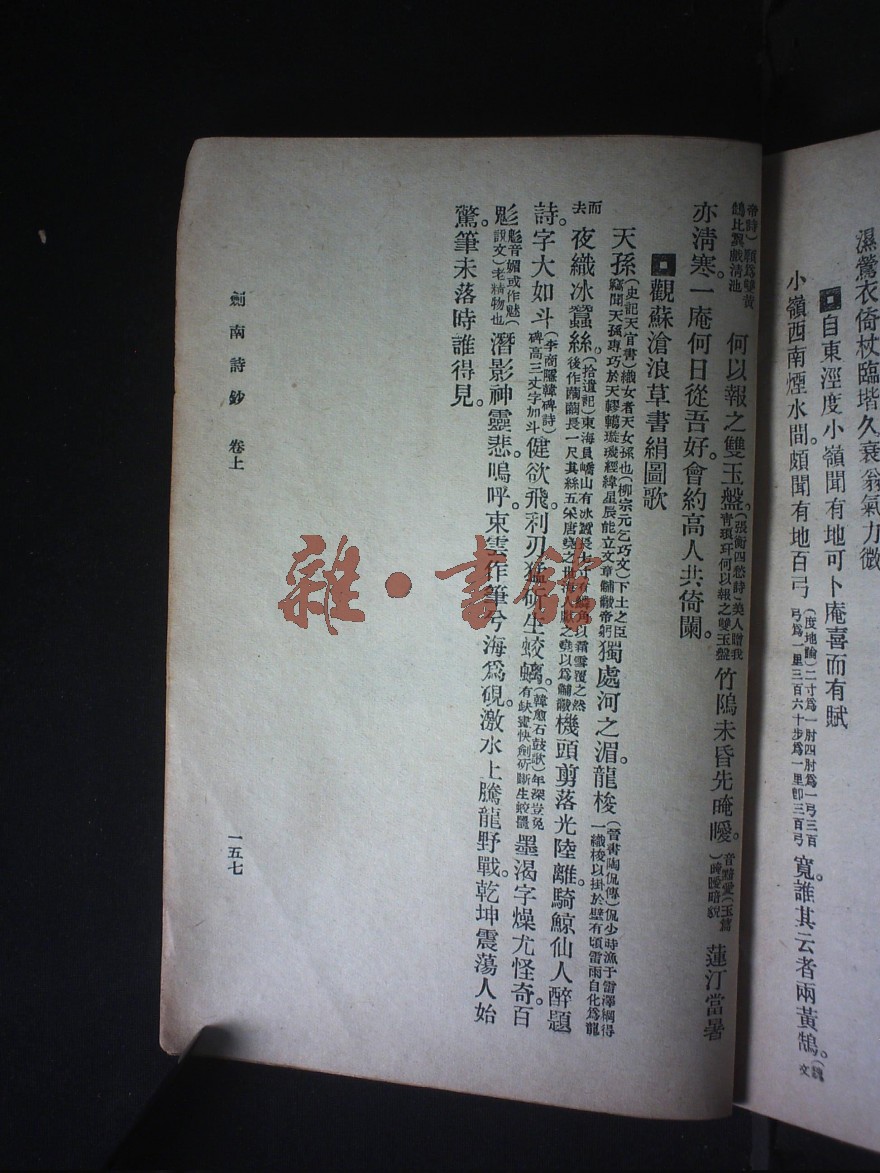 濕鶯衣倚杖臨堦久衰翁氣力微
自東涇度小嶺聞有地可卜庵喜而有賦
小嶺西南煙水間。頗聞有地百弓(度地論)二寸爲一肘四肘爲一弓三百弓爲一里三百六十步爲一里卽三百弓寬。誰其云者兩黃鵠。(魏文
帝時)願爲雙黃鵠比翼戲淸池何以報之雙玉盤。(張衡四愁詩)美人贈我靑琅玕何以報之雙玉盤竹隝未昏先晻曖。音黯愛(玉篇)晻曖暗貌蓮汀當暑
亦淸寒。一庵何日從吾好。會約高人共倚闌。
觀蘇滄浪草書絹圖歌
天孫(史記天官書)織女者天女孫也(柳宗元乞巧文)下土之臣竊聞天孫專巧於天轇轕璇璣經緯星辰能立文章黼黻帝躬獨處河之湄。龍梭(晉書陶侃傳)侃少時漁于雷澤網得一織梭以掛於壁有頃雷雨自化爲龍
而去夜織冰蠶絲。(拾遺記)東海員嶠山有冰蠶長以霜雪覆之然後作繭繭長一尺其絲五采唐堯之世海人獻之堯以爲黼黻機頭剪落光陸離。騎鯨仙人醉題
詩。字大如斗(李商隱韓碑詩)碑高三丈字如斗健欲飛。利刃猛斫生蛟螭。(韓愈石鼓歌)年深豈免有缺畫快劍斫斷生蛟鼉墨渴字燥尤怪奇。百
鬽鬽音媚或作魅(說文)老精物也潛影神靈悲。嗚呼。束雲作筆兮海爲硯。激水上騰龍野戰乾坤震蕩人始
驚。筆未落時誰得見。
劍南詩鈔 卷上
一五七
雜·書館